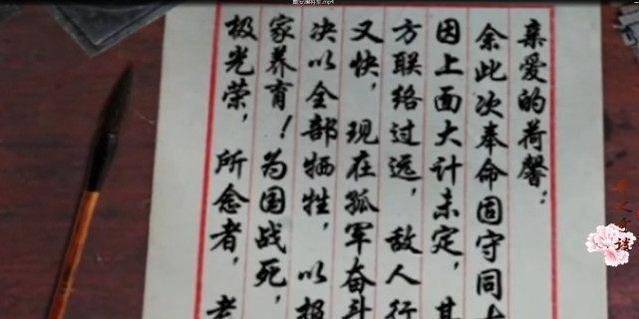 亲爱的荷馨：
余此次奉命固守同
因上面大计未定，其
方联络过远，敌人行
又快，现在孤军奋斗
决以全部牺牲，以报
家养育！为国战死，
极光荣，所念者，老